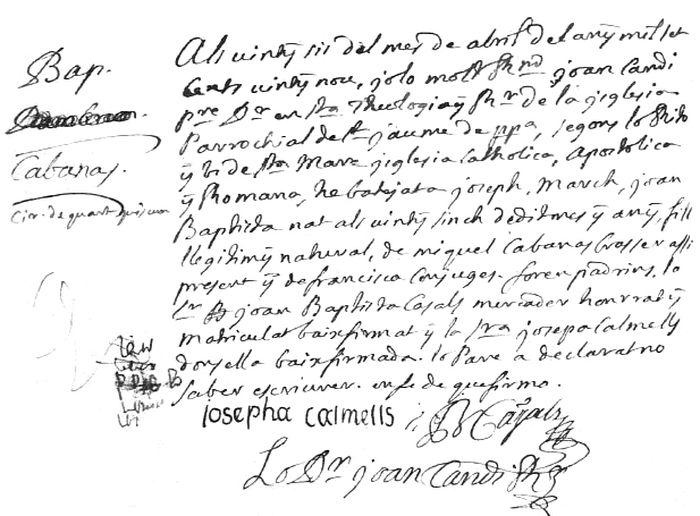 Bap.
Cabanas.
Als vinty sis del mes de abril del any mil set
cents vinty nou, jo lo molt Rnd joan Candi
pre Dr en sta Theologia y Rr de la jglesia
Parrochial de st jaume de ppa, segons lo Rito
y us de sta Mare jglesia Catholica, Apostolica
y Romana, he batejat a joseph, March, joan
Baptista nat als vinty sinch de dit mes y any, fill
llegitim y natural, de miquel Cabanas brosser assi
present y de francisca conjuges. foren padrins, lo
Sr B joan Baptista Casals mercader honrrat y
matriculat baix firmat y la Sra josepa Calmells
donsella baix firmada. lo Pare a declarat no
saber escriurer. en fe de que firmo.
Iosepha calmells
B Casals
Lo Dr joan Candi Rr